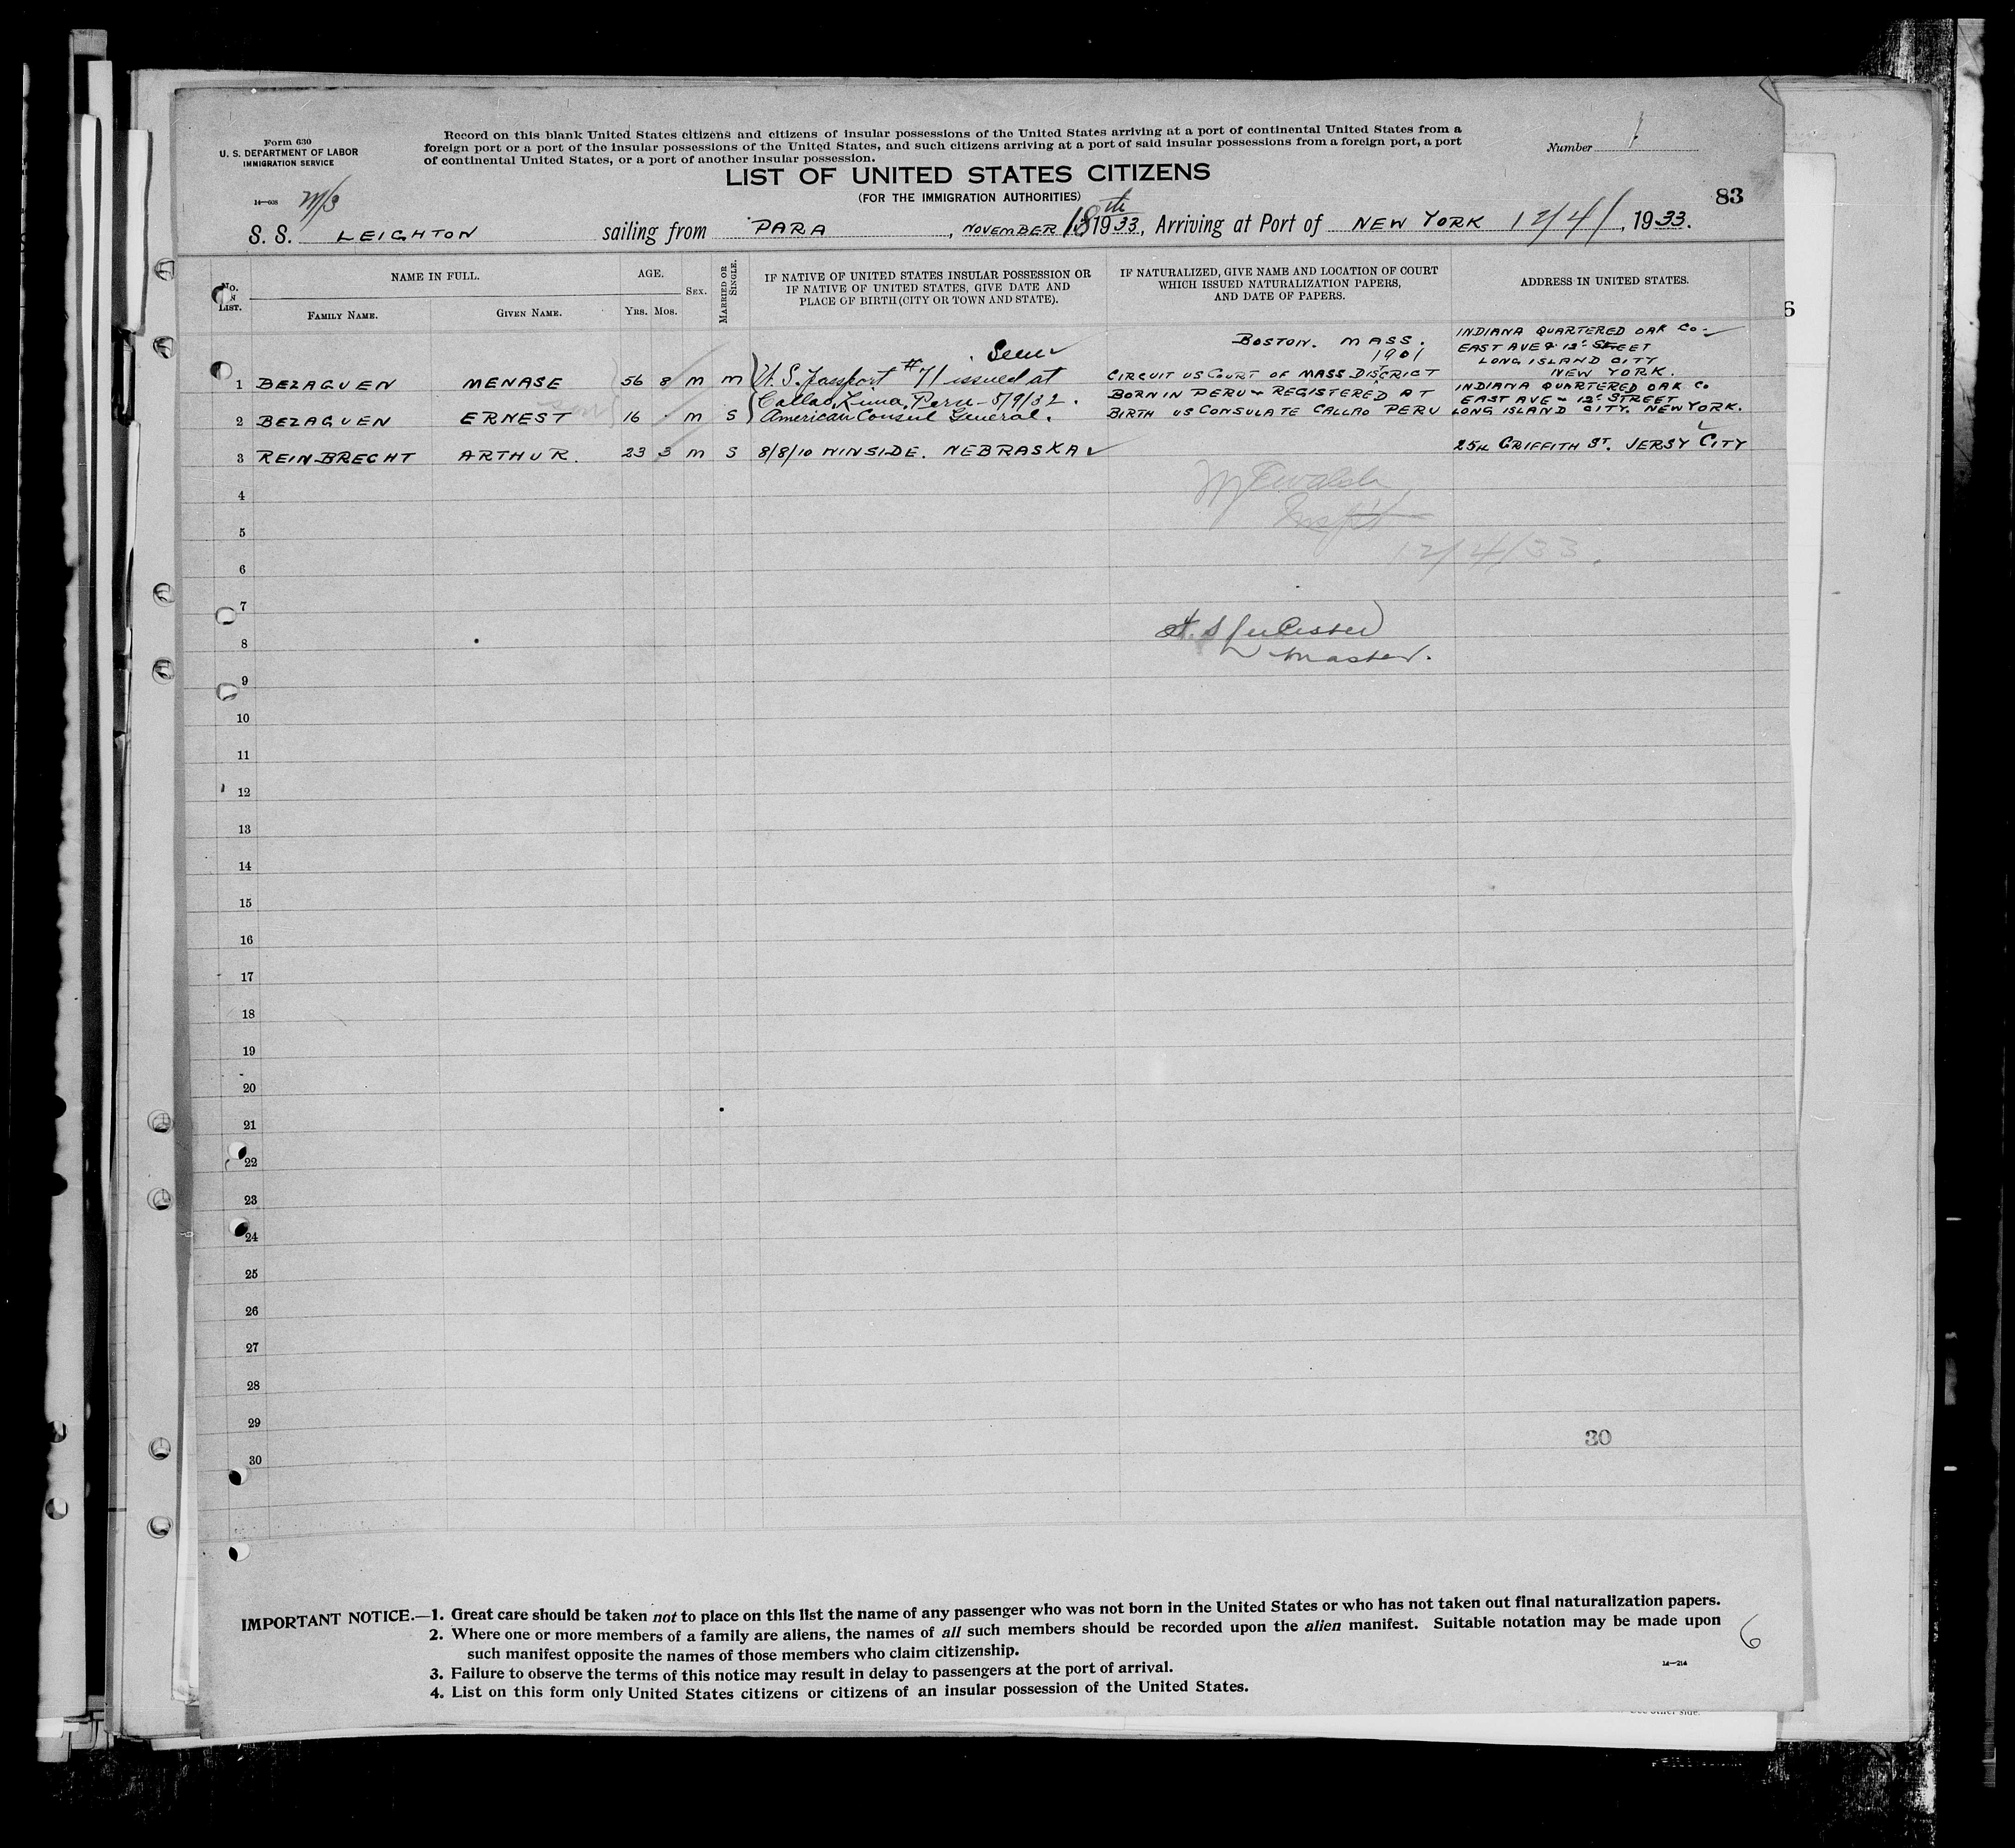 Form 630
U. S. DEPARTMENT OF LABOR
IMMIGRATION SERVICE
Record on this blank United States citizens and citizens of insular possessions of the United States arriving at a port of continental United States from a
foreign port or a port of the insular possessions of the United States, and such citizens arriving at a port of said insular possessions from a foreign port, a port
of continental United States, or a port of another insular possession.
Number 1
LIST OF UNITED STATES CITIZENS
(FOR THE IMMIGRATION AUTHORITIES)
83
14—608
M/S
S. S. LEIGHTON sailing from PARA, NOVEMBER 18th 1933, Arriving at Port of NEW YORK 12/4/, 1933.
No. ON LIST.
NAME IN FULL.
FAMILY NAME.
GIVEN NAME.
AGE.
YRS. MOS.
SEX.
MARRIED OR SINGLE.
IF NATIVE OF UNITED STATES INSULAR POSSESSION OR
IF NATIVE OF UNITED STATES, GIVE DATE AND
PLACE OF BIRTH (CITY OR TOWN AND STATE).
IF NATURALIZED, GIVE NAME AND LOCATION OF COURT
WHICH ISSUED NATURALIZATION PAPERS,
AND DATE OF PAPERS.
ADDRESS IN UNITED STATES.
6
1 BEZAGUEN MENASE 56 8 M M
Seen
U. S. Passport #71 issued at
Callao, Lima, Peru - 5/9/32.
American Consul General.
BOSTON. MASS.
1901
CIRCUIT US COURT OF MASS DISTRICT
INDIANA QUARTERED OAK CO
EAST AVE & 12c STREET
LONG ISLAND CITY
NEW YORK.
2 BEZAGUEN ERNEST 16 M S
son
BORN IN PERU - REGISTERED AT
BIRTH US CONSULATE CALLAO PERU
INDIANA QUARTERED OAK CO
EAST AVE - 12c STREET
LONG ISLAND CITY. NEW YORK.
3 REINBRECHT ARTHUR. 23 3 M S 8/8/10 WINSIDE. NEBRASKA 254 GRIFFITH ST. JERSY CITY
4
5
12/4/33.
6
7
8
Master.
9
10
11
12
13
14
15
16
17
18
19
20
21
22
23
24
25
26
27
28
29
30
30
IMPORTANT NOTICE.—1. Great care should be taken not to place on this list the name of any passenger who was not born in the United States or who has not taken out final naturalization papers.
2. Where one or more members of a family are aliens, the names of all such members should be recorded upon the alien manifest. Suitable notation may be made upon
such manifest opposite the names of those members who claim citizenship.
3. Failure to observe the terms of this notice may result in delay to passengers at the port of arrival.
4. List on this form only United States citizens or citizens of an insular possession of the United States.
14—214
6